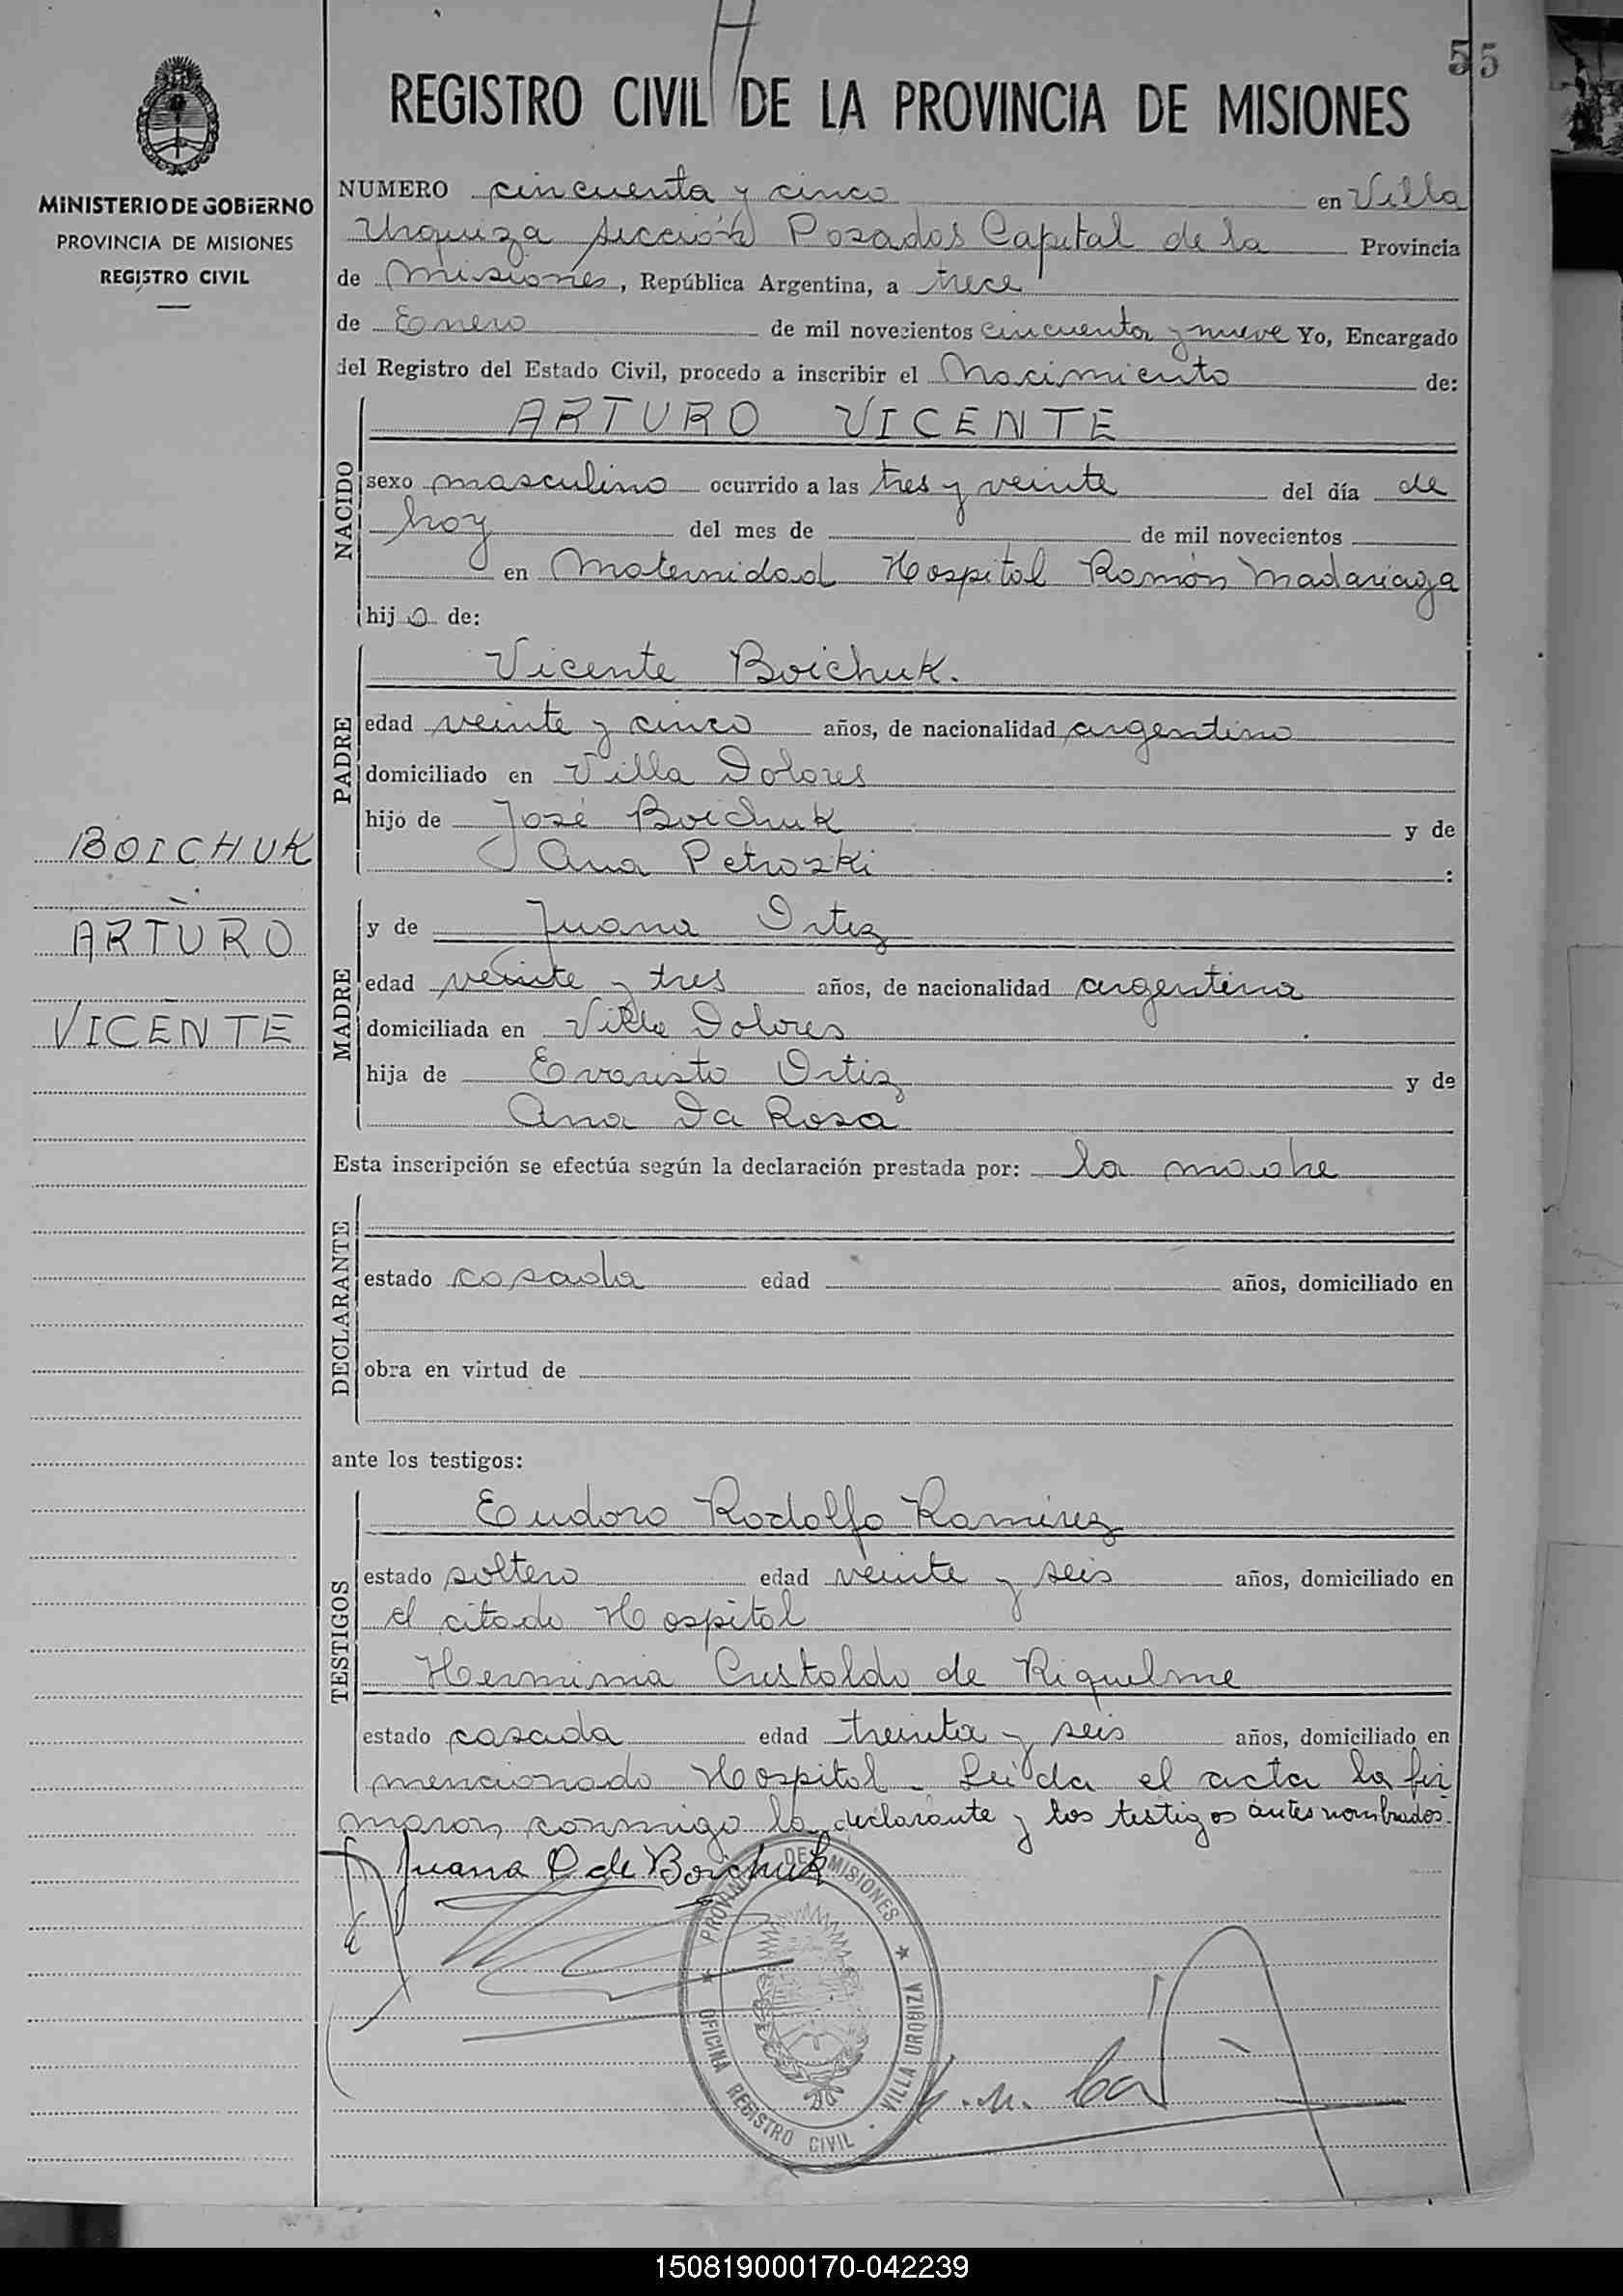 55
REGISTRO CIVIL DE LA PROVINCIA DE MISIONES
MINISTERIO DE GOBIERNO
PROVINCIA DE MISIONES
REGISTRO CIVIL
BOICHUK
ARTURO
VICENTE
NUMERO cincuenta y cinco en Villa
Urquiza sección Posadas Capital de la Provincia
de Misiones, República Argentina, a trece
de Enero de mil novecientos cincuenta y nueve Yo, Encargado
del Registro del Estado Civil, procedo a inscribir el Nacimiento de:
NACIDO
ARTURO VICENTE
sexo masculino ocurrido a las tres y veinte del día de
hoy del mes de de mil novecientos
en Maternidad Hospital Ramón Madariaga
hijo de:
PADRE
Vicente Boichuk.
edad veinte y cinco años, de nacionalidad argentino
domiciliado en Villa Dolores
hijo de José Boichuk y de
Ana Petroski :
MADRE
y de Juana Ortiz
edad veinte y tres años, de nacionalidad argentina
domiciliada en Villa Dolores
hija de Evaristo Ortiz y de
Ana Da Rosa
Esta inscripción se efectúa según la declaración prestada por: la madre
DECLARANTE
estado casada edad años, domiciliado en
obra en virtud de
ante los testigos:
TESTIGOS
Eudoro Rodolfo Ramirez
estado soltero edad veinte y seis años, domiciliado en
el citado Hospital
Herminia Custoldo de Riquelme
estado casada edad treinta y seis años, domiciliado en
mencionado Hospital. Leída el acta la fir
maron conmigo la declarante y los testigos antes nombrados.
Juana O de Boichuk
PROVINCIA DE MISIONES
OFICINA REGISTRO CIVIL - VILLA URQUIZA
150819000170-042239